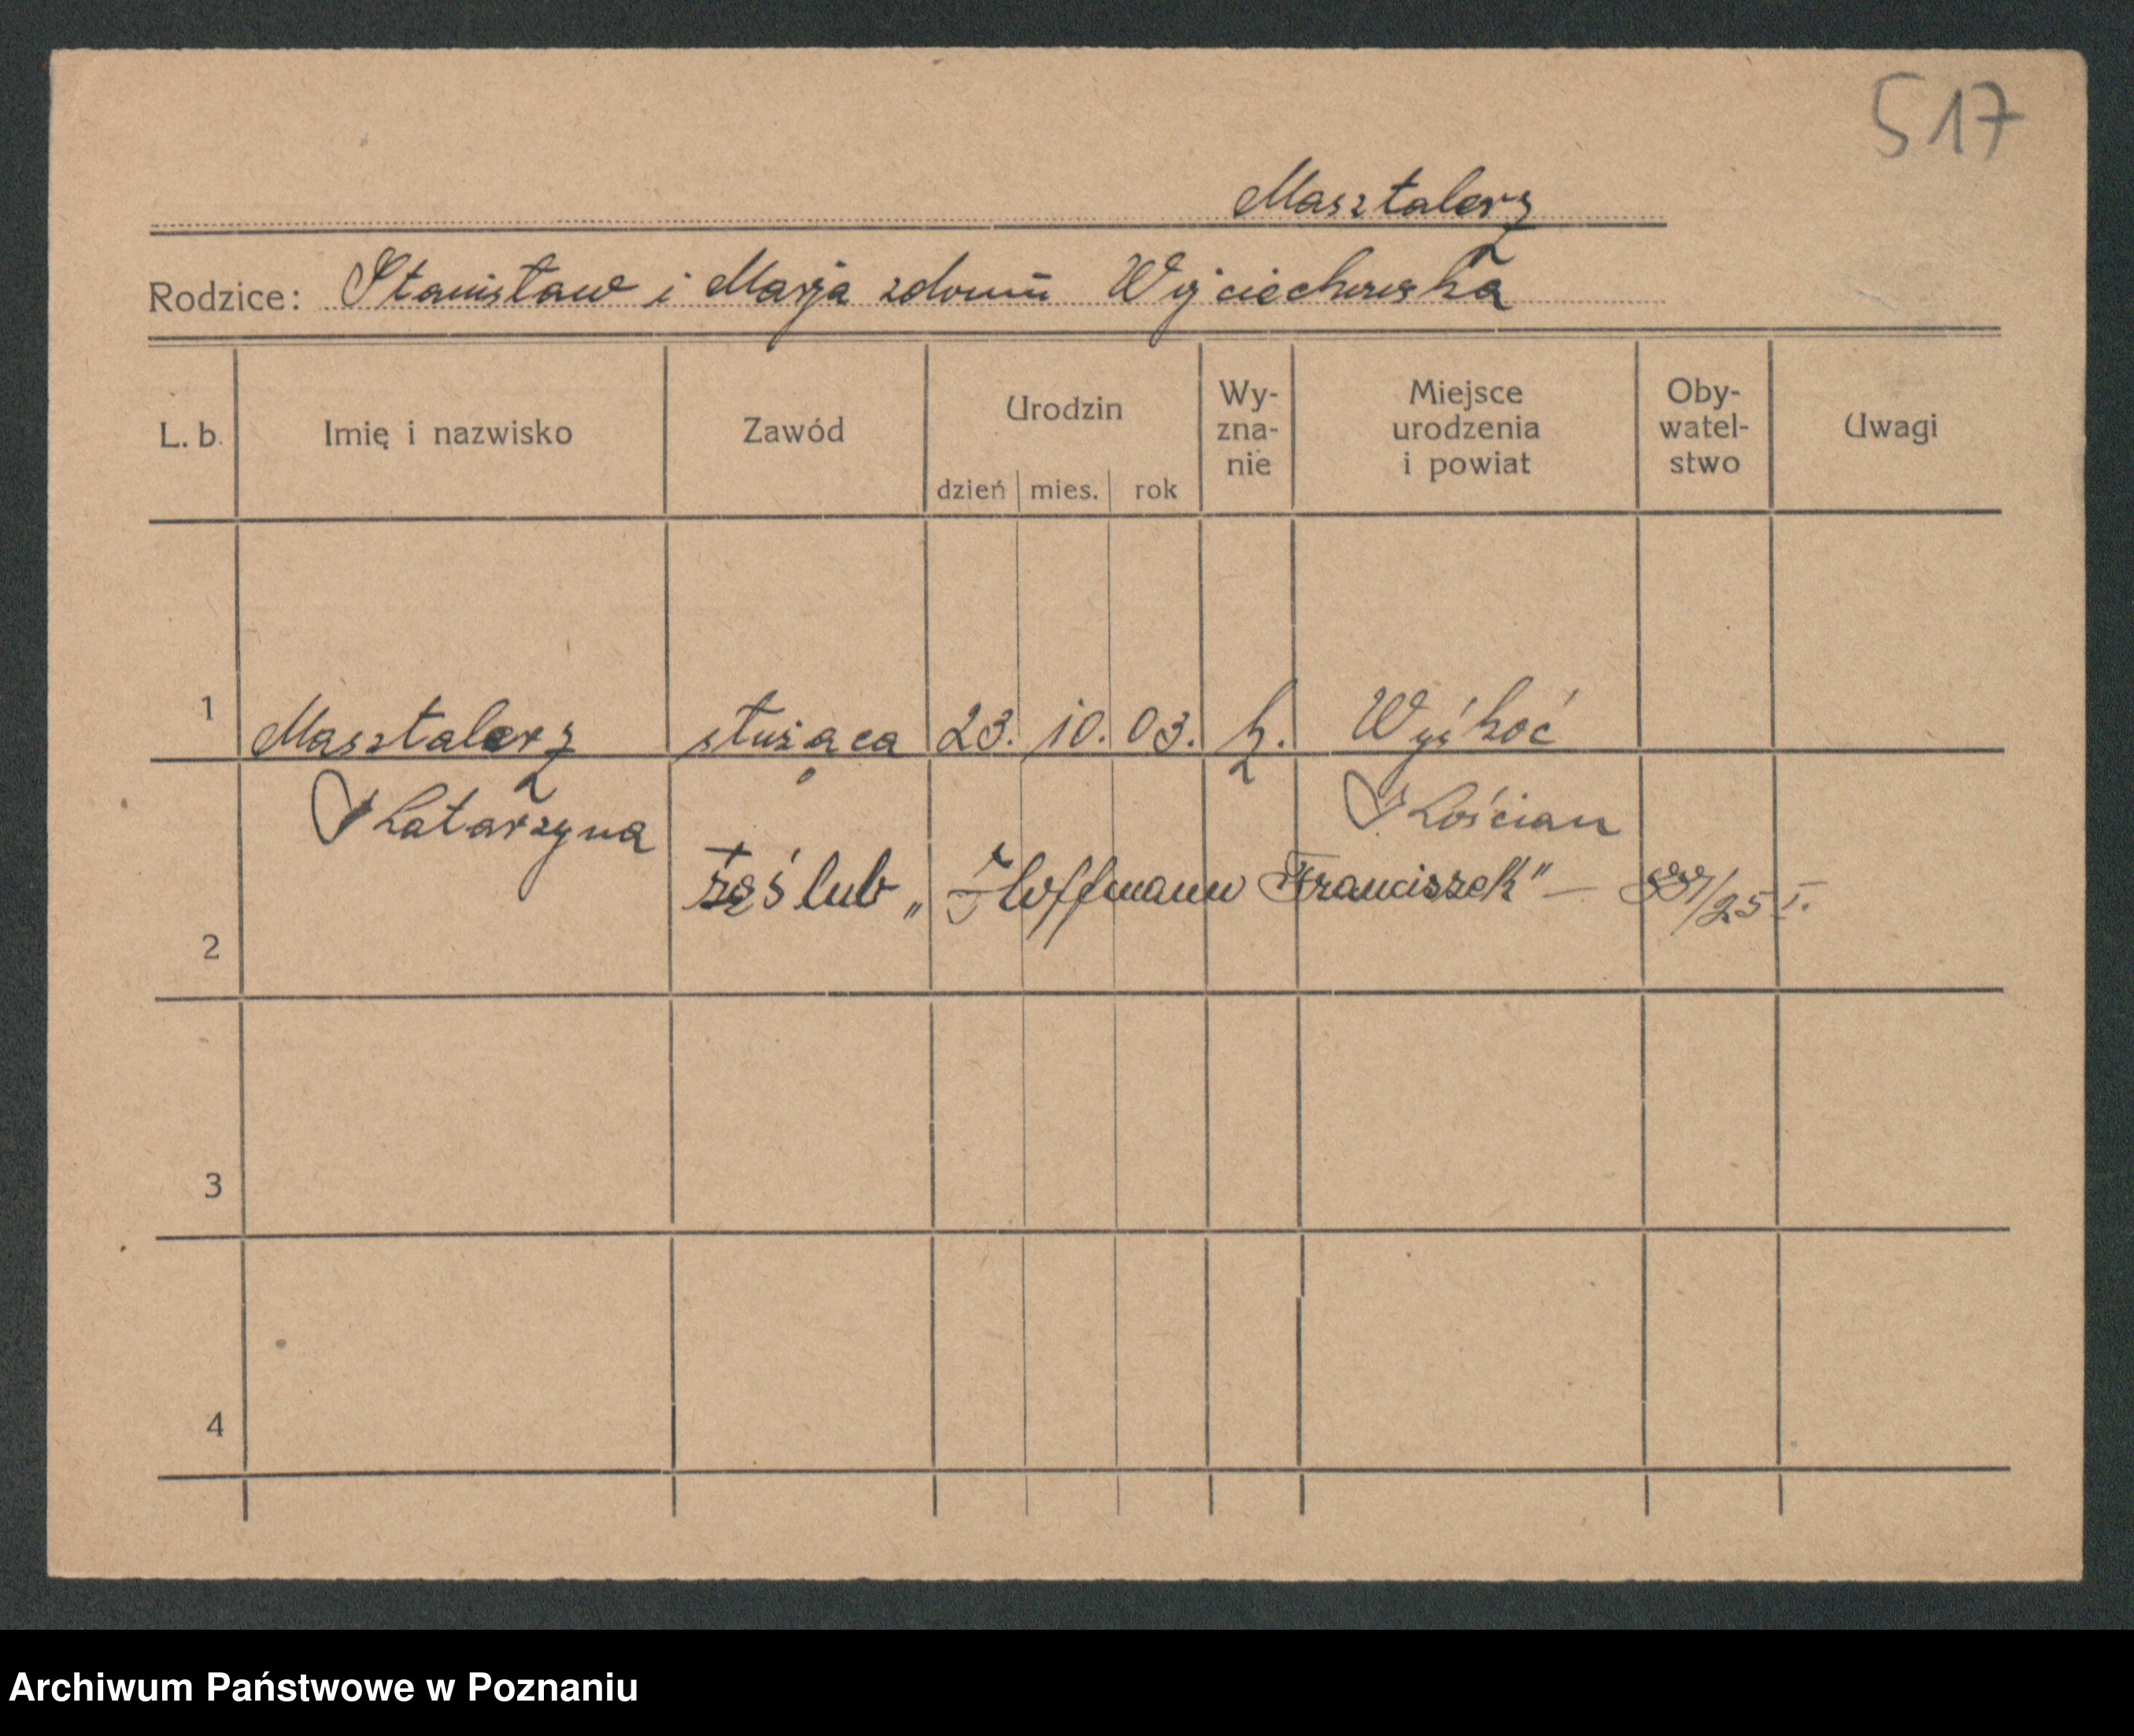 517
Masztalerz
Rodzice: Stanisław i Marja zdomu Wojciechowska
L. b. Imię i nazwisko Zawód Urodzin dzień mies. rok Wy-zna-nie Miejsce urodzenia i powiat Oby-watel-stwo Uwagi
1 Masztalerz służąca 23. 10. 03. k. Wyskoć
Katarzyna Kościan
2 zaślub „Hoffmann Franciszek" — /25 I.
3
4
Archiwum Państwowe w Poznaniu